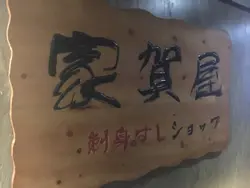 家賀屋
刺身はしショップ